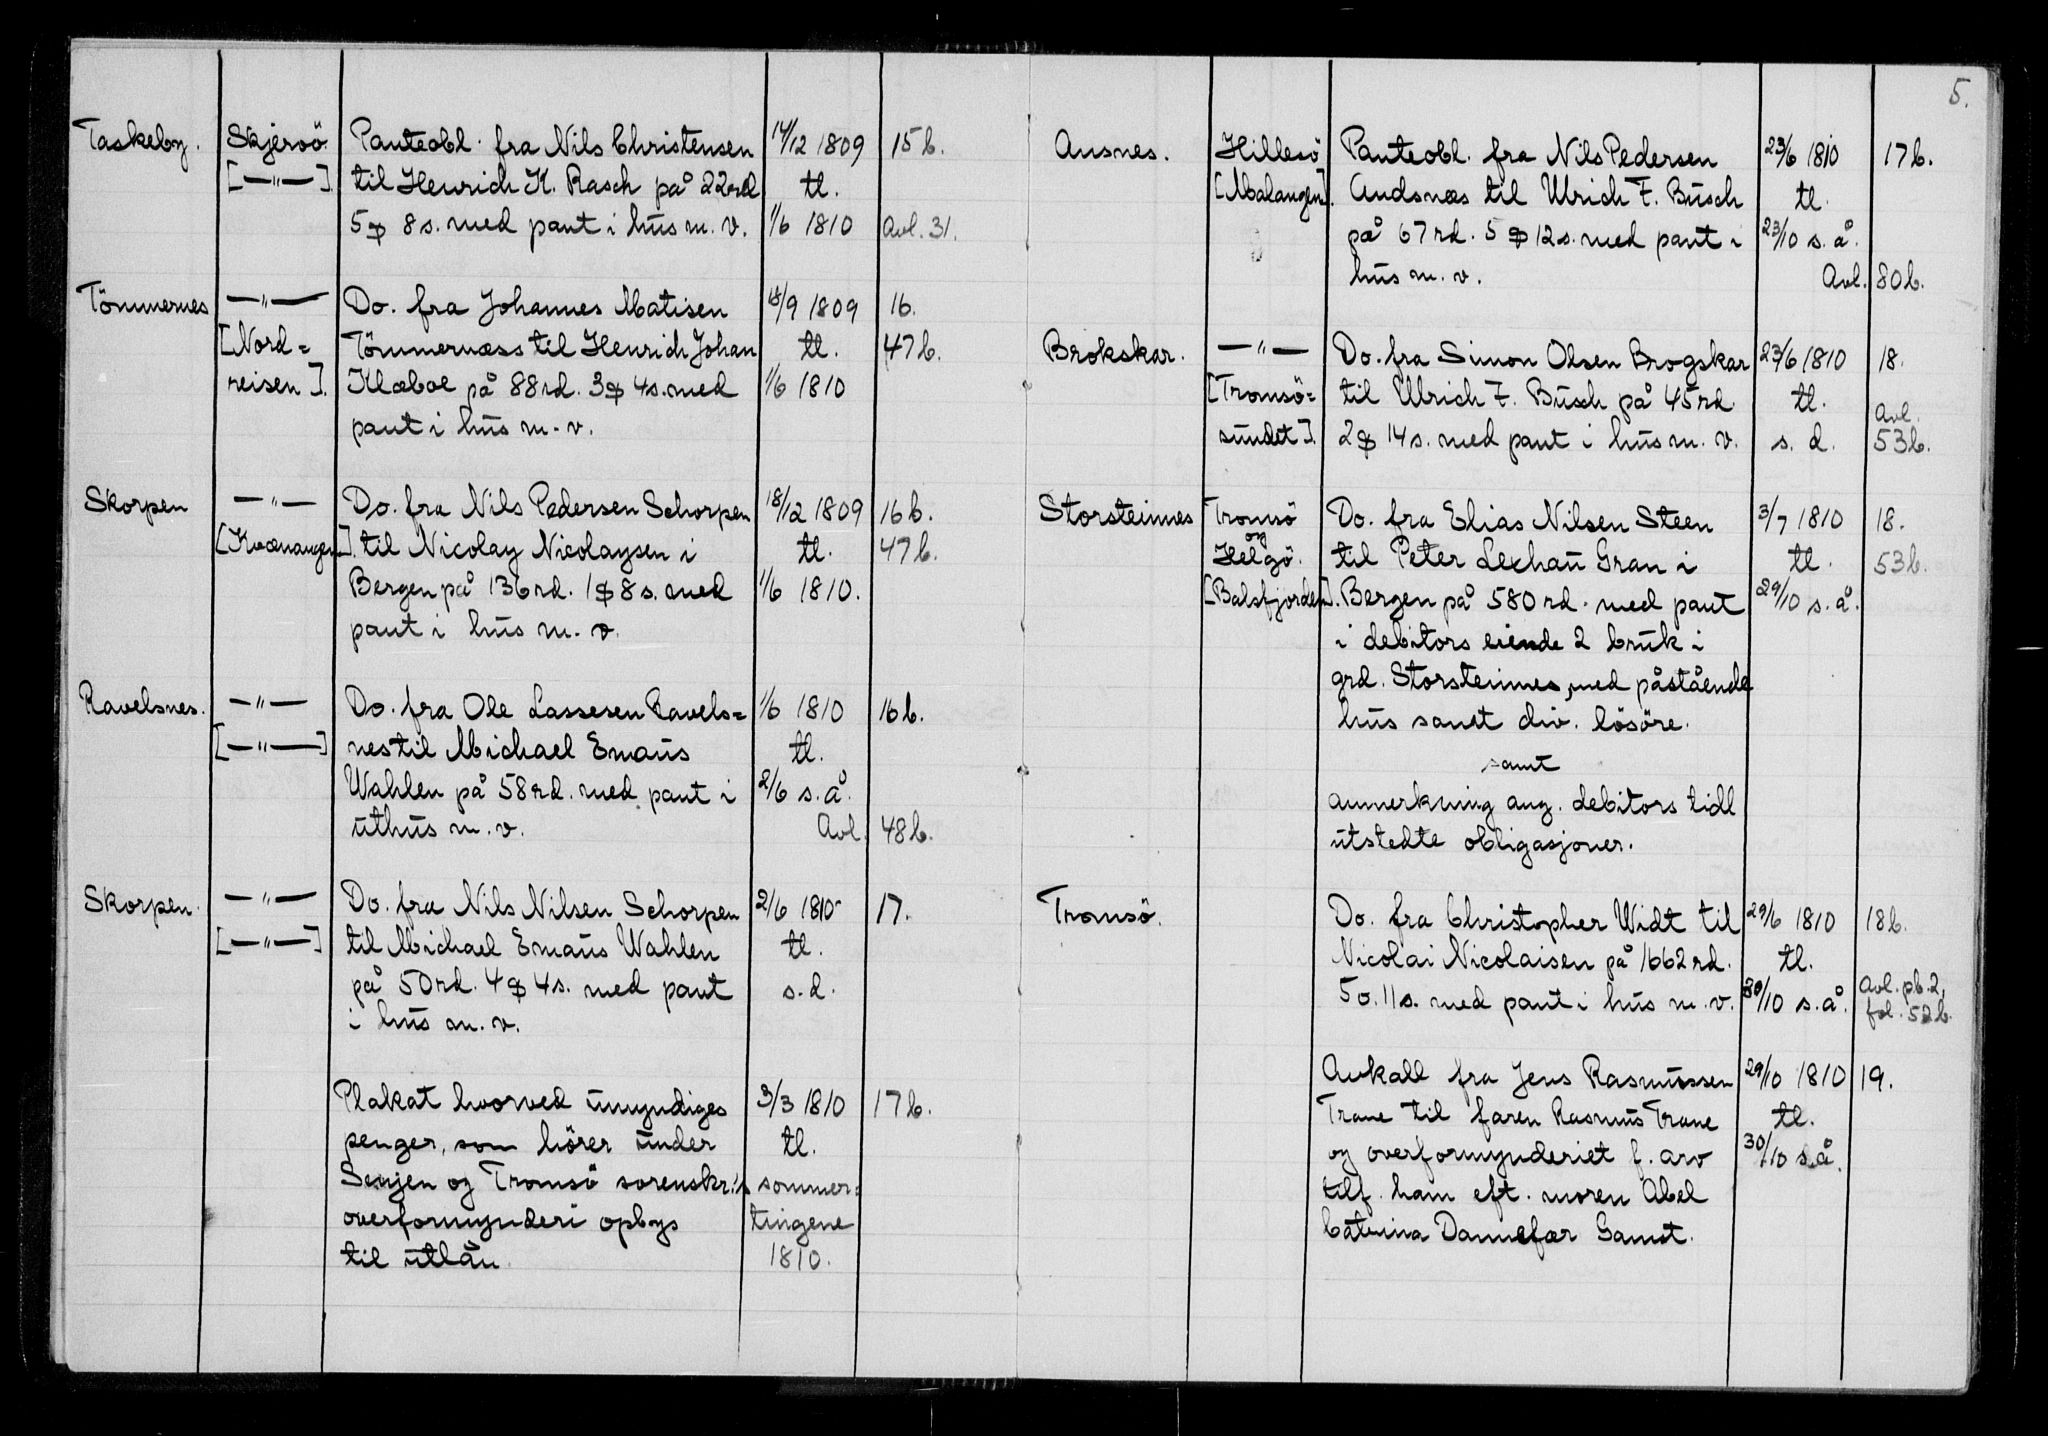 5.
Taskeby. Skjervö. Panteobl. fra Nils Christensen 14/12 1809 15b.
[—"—]. til Henrich K. Rasch på 22rd tl.
5 $ 8 s. med pant i hus m. v. 1/6 1810 Avl. 31.
Tömmernes —"— Do. fra Johannes Matisen 18/9 1809 16.
[Nord= Tömmernæss til Henrich Johan tl. 47b.
reisen]. Klæboe på 88rd. 3$ 4s. med 1/6 1810
pant i hus m. v.
Skorpen —"— Do. fra Nils Pedersen Schorpen 18/12 1809 16b.
[Kvænangen]. til Nicolay Nicolaysen i tl. 47b.
Bergen på 136rd. 1$ 8 s. med 1/6 1810.
pant i hus m. v.
Ravelsnes. —"— Do. fra Ole Lassesen Ravels= 1/6 1810 16b.
[—"—] nes til Michael Emaus tl.
Wahlen på 58rd. med pant i 2/6 s. å.
uthus m. v. Avl. 48b.
Skorpen. —"— Do. fra Nils Nilsen Schorpen 2/6 1810 17.
[—"—] til Michael Emaus Wahlen tl.
på 50rd. 4$ 4s. med pant s. d.
i hus m. v.
Plakat hvorved umyndiges 3/3 1810 17b.
penger, som hörer under tl.
Senjen og Tromsö sorenskr.'s sommer=
overformynderi opbys tingene
til utlån. 1810.
Ausnes. Hillesö Panteobl. fra Nils Pedersen 23/6 1810 17b.
[Malangen]. Andsnæs til Ulrich F. Busch tl.
på 67rd. 5 $ 12s. med pant i 23/10 s. å.
hus m. v. Avl. 80b.
Brokskar. —"— Do. fra Simon Olsen Brogskar 23/6 1810 18.
[Tromsö= til Ulrich F. Busch på 45rd. tl. Avl.
sundet]. 2$ 14s. med pant i hus m. v. s. d. 53b.
Storsteinnes Tromsö Do. fra Elias Nilsen Steen 3/7 1810 18.
og
Helgö. til Peter Lexhau Gran i tl. 53b.
[Balsfjorden]. Bergen på 580rd. med pant 29/10 s. å.
i debitors eiende 2 bruk i
grd. Storsteinnes, med påstående
hus samt div. lösöre.
samt
anmerkning ang. debitors tidl
utstedte obligasjoner.
Tromsö. Do. fra Christopher Widt til 29/6 1810 18b.
Nicolai Nicolaisen på 1662rd. tl.
5 o. 11s. med pant i hus m. v. 30/10 s. å. Avl. pb. 2,
fol. 52b.
Avkall fra Jens Rasmussen 29/10 1810 19.
Trane til faren Rasmus Trane tl.
og overformynderiet f. arv 30/10 s. å.
tilf. ham eft. moren Abel
Catrina Dannefær Gamst.